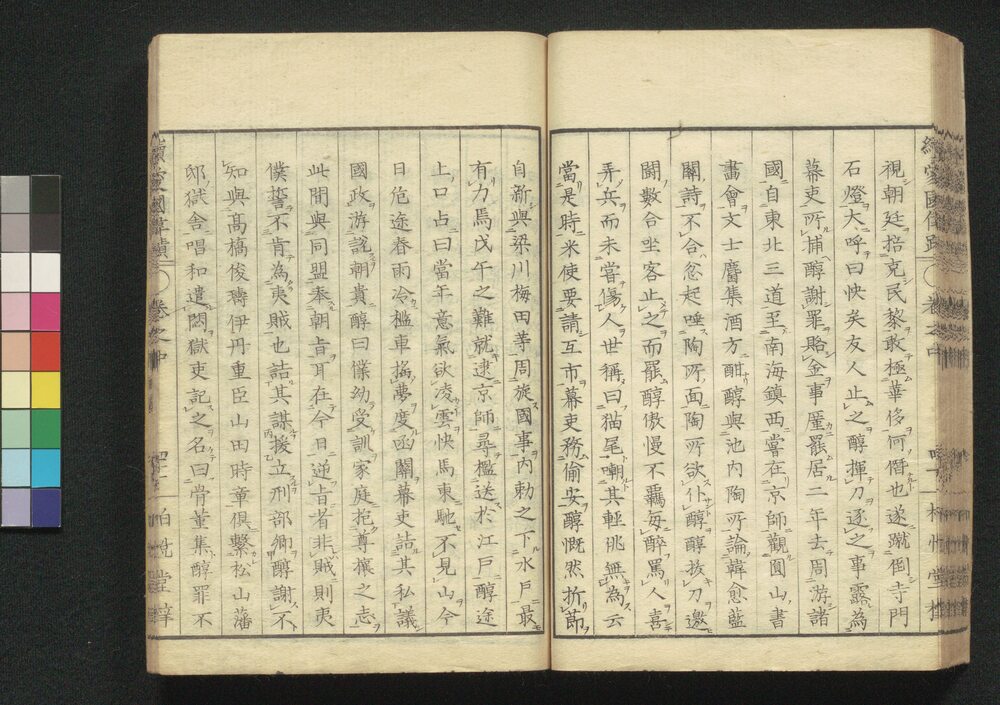 視朝廷掊克民黎敢極華侈何僭也遂蹴倒寺門
石燈大呼曰快矣友人止之醇揮刀逐之事露為
幕吏所捕醇謝罪賂金事廑罷居二年去周游諸
國自東北三道至南海鎮西嘗在京師觀圓山書
畫會文士麕集酒方酣醇與池内陶所論韓愈藍
關詩不合忽起唾陶所面陶所欲仆醇醇拔刀邀
鬪數合坐客止之而罷醇傲慢不羈每醉罵人喜
弄兵而未嘗傷人世稱曰猫尾嘲其輕佻無為云
當是時米使要請互市幕吏務偷安醇慨然折節
自新與梁川梅田等周旋國事内勅之下水戶最
有力焉戊午之難就逮京師尋檻送於江戶醇途
上口占曰當年意氣欲凌雲快馬東馳不見山今
日危途春雨冷檻車搖夢度函關幕吏詰其私議
國政游説朝貴醇曰僕幼受訓家庭抱尊攘之志
此間與同盟奉朝旨耳在今日逆旨者非賊則夷
僕誓不肯為夷賊也詰其謀援立刑部卿醇謝不
知與髙槗俊璹伊丹重臣山田時章俱繫松山藩
邸獄舍唱和遣悶獄吏記之名曰骨董集醇罪不
續愛國偉績
卷之中